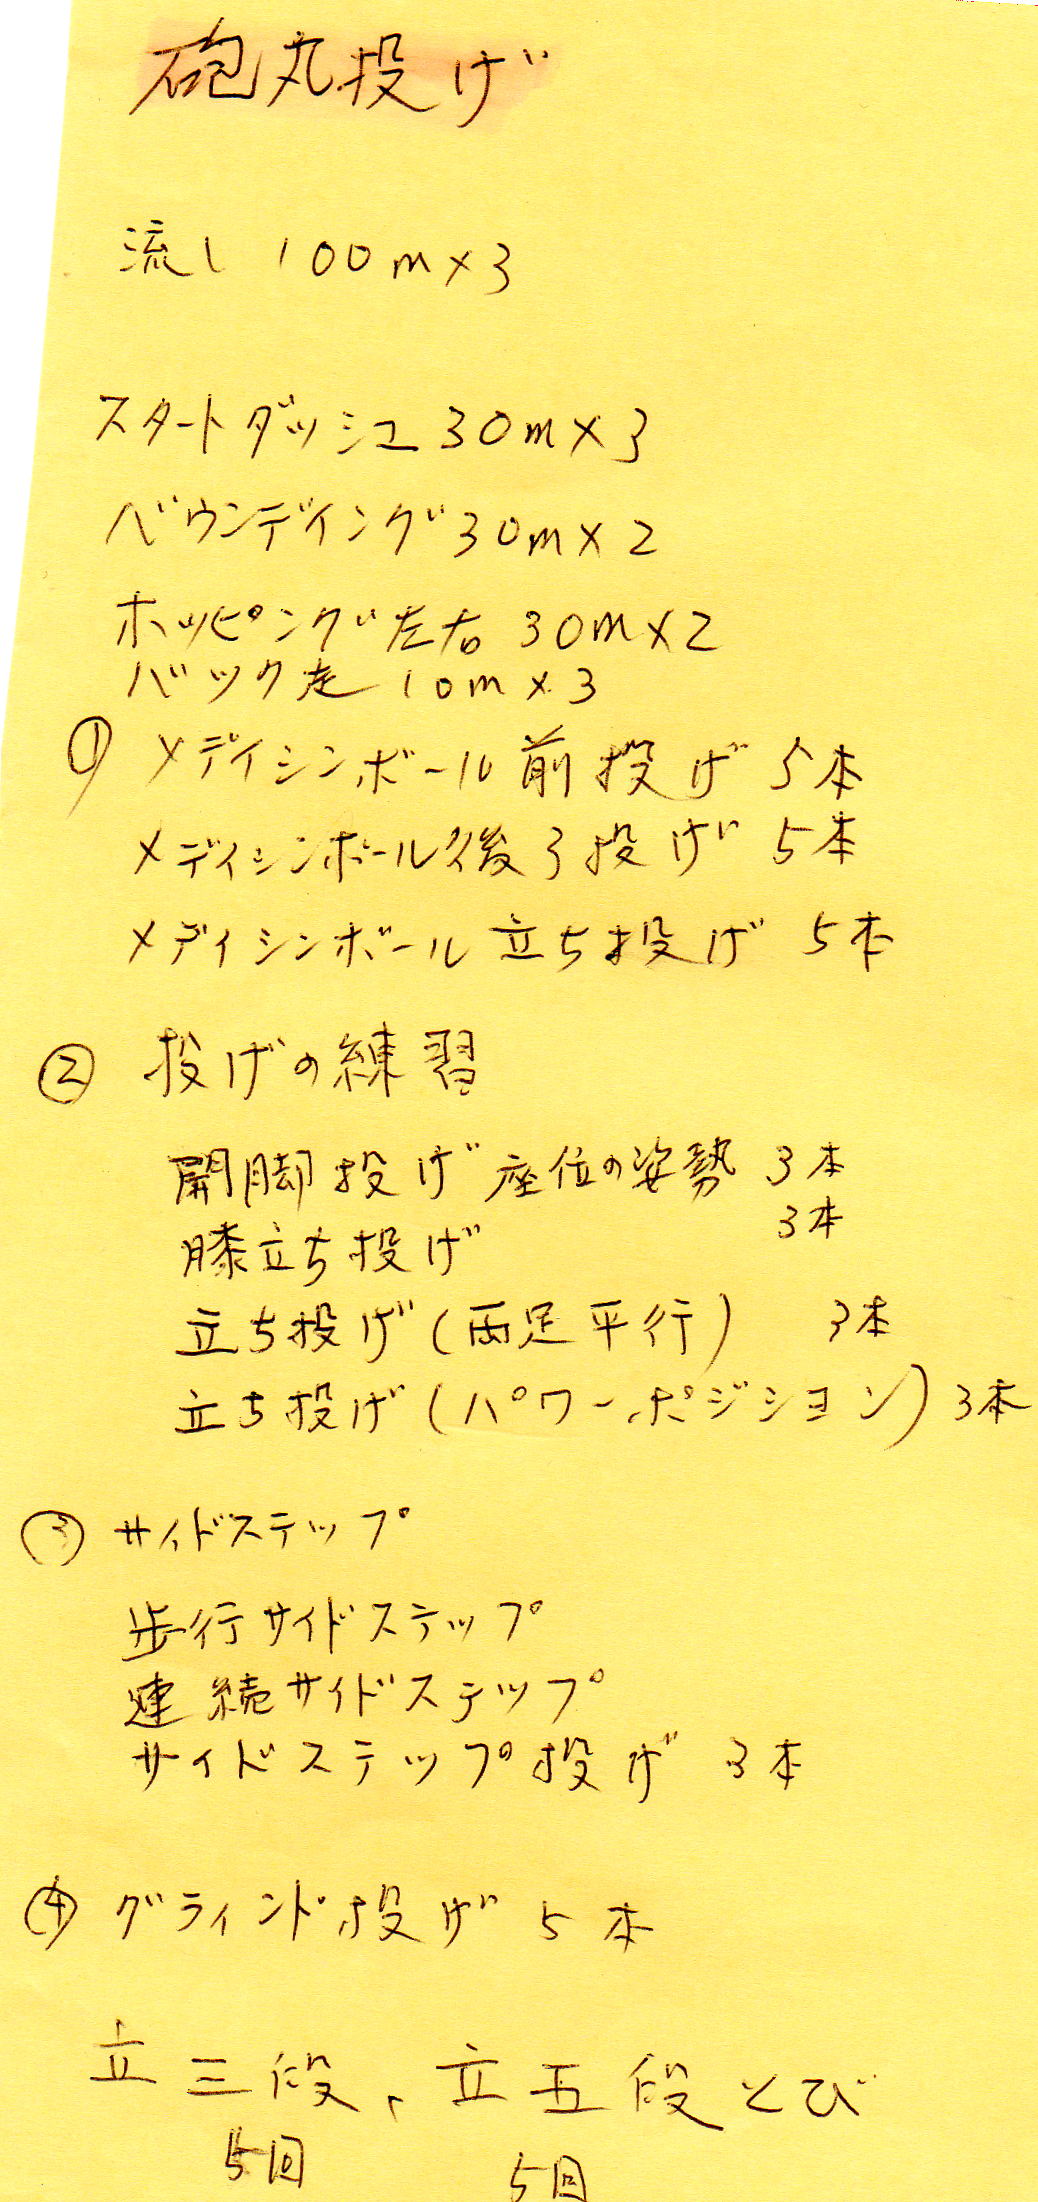 砲丸投げ
流し 100m×3
スタートダッシュ 30m×3
バウンディング 30m×2
ホッピング左右 30m×2
バック走 10m×3
① メディシンボール前投げ 5本
メディシンボール後ろ投げ 5本
メディシンボール立ち投げ 5本
② 投げの練習
開脚投げ 座位の姿勢 3本
膝立ち投げ 3本
立ち投げ(両足平行) 3本
立ち投げ(パワーポジション) 3本
③ サイドステップ
歩行サイドステップ
連続サイドステップ
サイドステップ投げ 3本
④ グラインド投げ 5本
立三段、立五段とび
5回 5回